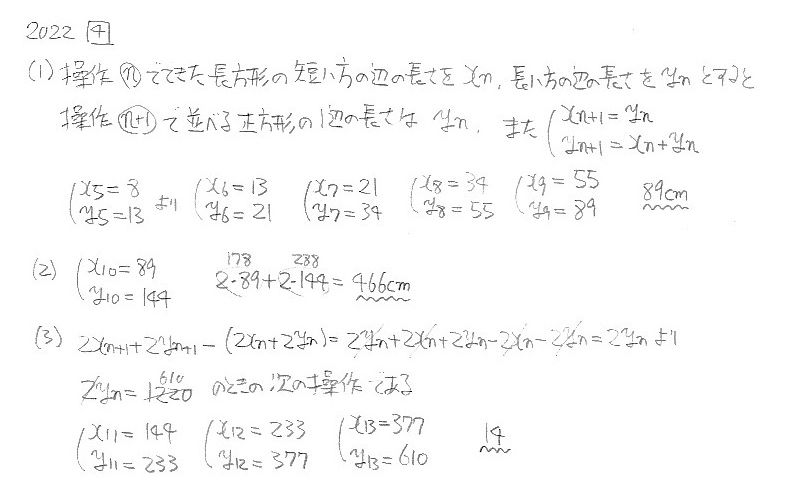 2022 4
(1) 操作 n でできた長方形の短い方の辺の長さを xn, 長い方の辺の長さを yn とすると
操作 n+1 で並べる正方形の1辺の長さは yn, また { xn+1 = yn
yn+1 = xn + yn
{ x5 = 8 y5 = 13 より { x6 = 13 y6 = 21 { x7 = 21 y7 = 34 { x8 = 34 y8 = 55 { x9 = 55 y9 = 89 89cm
(2) { x10 = 89 y10 = 144 178 288 2·89+2·144 = 466cm
(3) 2xn+1 + 2yn+1 - (2xn + 2yn) = 2yn + 2xn + 2yn - 2xn - 2yn = 2yn より
2yn = 1220 610 のときの次の操作である
{ x11 = 144 y11 = 233 { x12 = 233 y12 = 377 { x13 = 377 y13 = 610 14